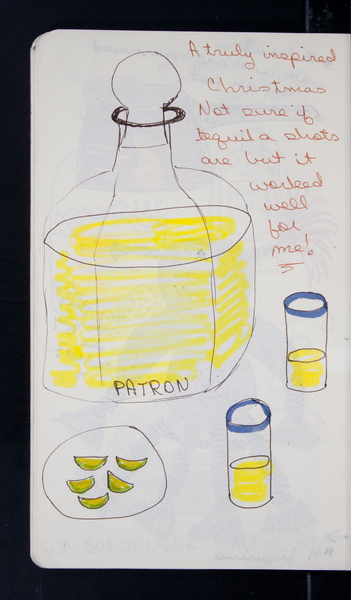 A truly inspired
Christmas
Not sure if
tequila shots
are but it
worked
well
for
me!
PATRON